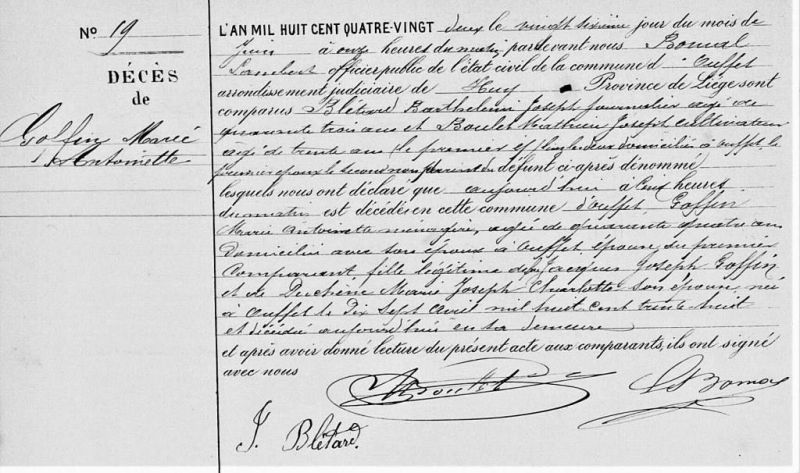 No 19
DÉCÈS
de
Goffin Marie
Antoinette
L'AN MIL HUIT CENT QUATRE-VINGT deux le vingt sixième jour du mois de
Juin à onze heures du matin par devant nous Bomal
Lambert officier public de l'état civil de la commune d'Ouffet
arrondissement judiciaire de Huy Province de Liége sont
comparus Blétard Barthelemi Joseph journalier agé de
quarante trois ans et Boulet Mathieu Joseph cultivateur
agé de trente ans le premier et domiciliés à Ouffet le
premier époux le second non parent du défunt ci-après dénommé
lesquels nous ont déclaré que aujourd'hui à heures
du matin est décédée en cette commune d'Ouffet Goffin
Marie Antoinette menagère, agée de quarante quatre ans
domiciliée avec son époux à Ouffet, épouse du premier
Comparant fille légitime de Jacques Joseph Goffin
et de Duchêne Marie Joseph Charlotte son épouse, née
à Ouffet le Dix Sept Avril mil huit cent trente huit
et décédée aujourd'hui en sa demeure
et après avoir donné lecture du présent acte aux comparants, ils ont signé
avec nous
Boulet
Bomal
J. Blétard.